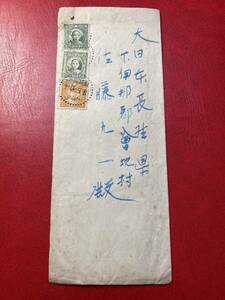 大日本長野県
下伊那郡會地村
佐藤九一殿